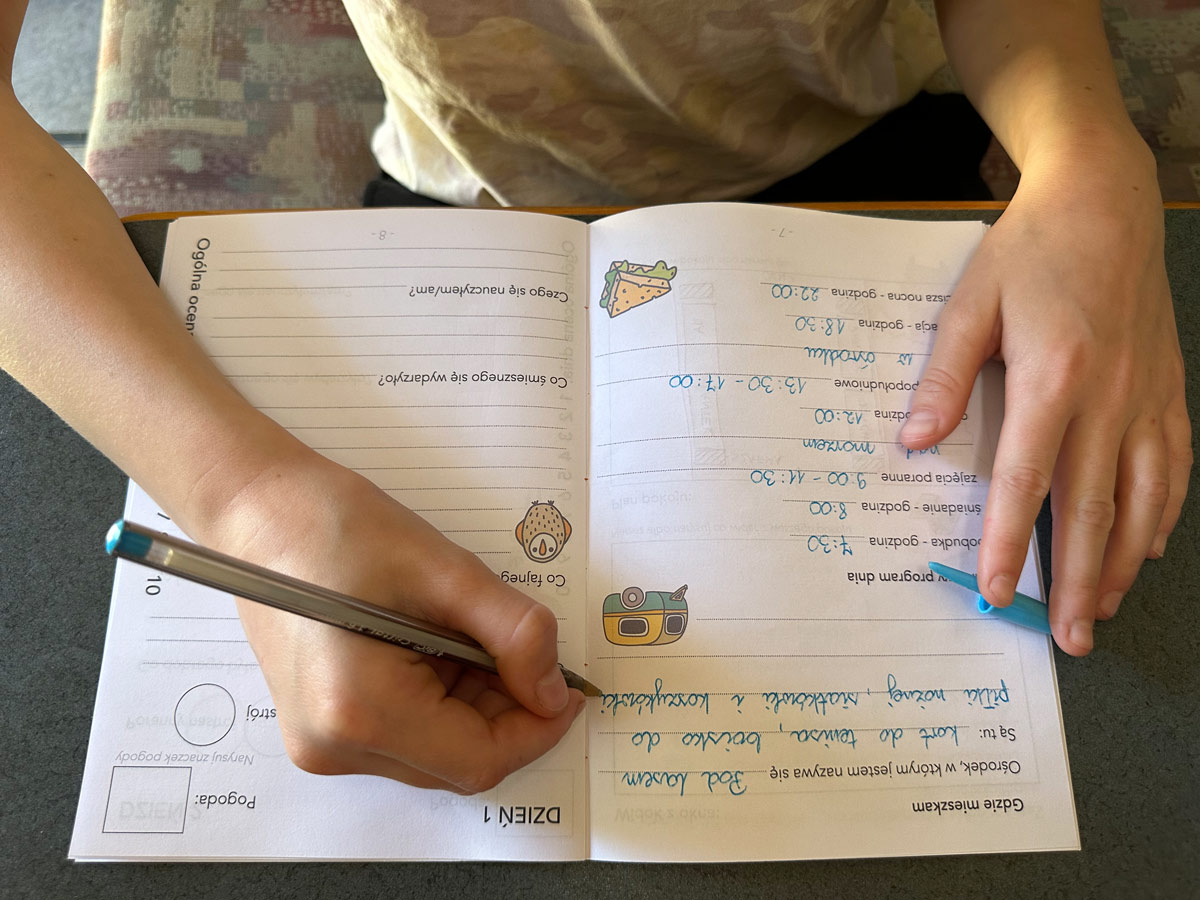 Gdzie mieszkam
Ośrodek, w którym jestem nazywa się Pod Lasem
Są tu: kort do tenisa, boisko do
piłki nożnej, siatkówki i koszykówki
program dnia
obudka - godzina 7:30
śniadanie - godzina 8:00
zajęcia poranne 9:00 - 11:30
morzem
godzina 12:00
popołudniowe 13:30 - 17:00
w ośrodku
acja - godzina 18:30
cisza nocna - godzina 22:00
- 7 -
DZIEŃ 1
Pogoda:
Narysuj znaczek pogody
strój
10
Co fajneg
Co śmiesznego się wydarzyło?
Czego się nauczyłem/am?
Ogólna ocen
- 8 -